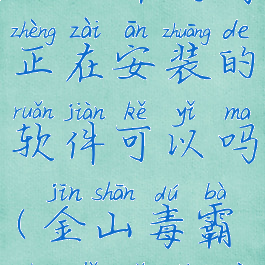 zhèng zài ān zhuāng de
正在安装的
ruǎn jiàn kě yǐ ma
软件可以吗
jīn shān dú bà
(金山毒霸